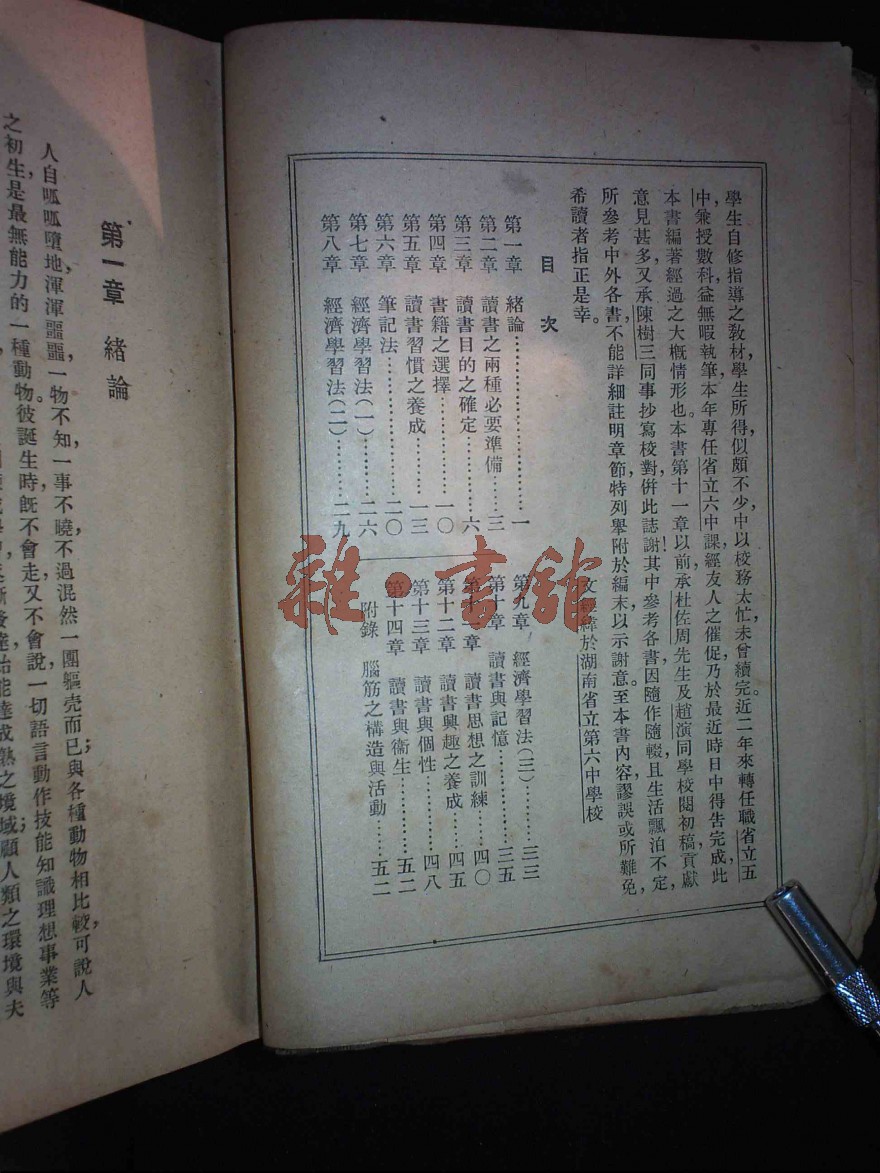 學生自修指導之教材,學生所得,似頗不少,中以校務太忙,未曾續完。近二年來轉任職省立五
中,兼授數科,益無暇執筆。本年專任省立六中課,經友人之催促,乃於最近時日中,得告完成,此
本書編著經過之大概情形也。本書第十一章以前,承杜佐周先生及趙演同學校閱初稿,貢獻
意見甚多;又承陳樹三同事抄寫校對,併此誌謝!其中參考各書,因隨作隨輟,且生活飄泊不定,
所參考中外各書,不能詳細註明章節,特列舉附於編末,以示謝意。至本書內容,謬誤或所難免,
希讀者指正是幸。
於湖南省立第六中學校
目次
第一章 緒論……一
第二章 讀書之兩種必要準備……三
第三章 讀書目的之確定……六
第四章 書籍之選擇……一〇
第五章 讀書習慣之養成……一三
第六章 筆記法……二〇
第七章 經濟學習法(一)……二六
第八章 經濟學習法(二)……二九
第九章 經濟學習法(三)……三三
第十章 讀書與記憶……三五
第十一章 讀書思想之訓練……四〇
第十二章 讀書興趣之養成……四五
第十三章 讀書與個性……四八
第十四章 讀書與衞生……五二
附錄 腦筋之構造與活動……五二
第一章 緒論
人自呱呱墮地,渾渾噩噩,一物不知,一事不曉,不過混然一團軀壳而已;與各種動物相比較,可說人
之初生,是最無能力的一種動物。彼誕生時,既不會走,又不會說,一切語言動作技能知識理想事業等
始能達成熟之境域;顧人類之環境與夫
雜·書館